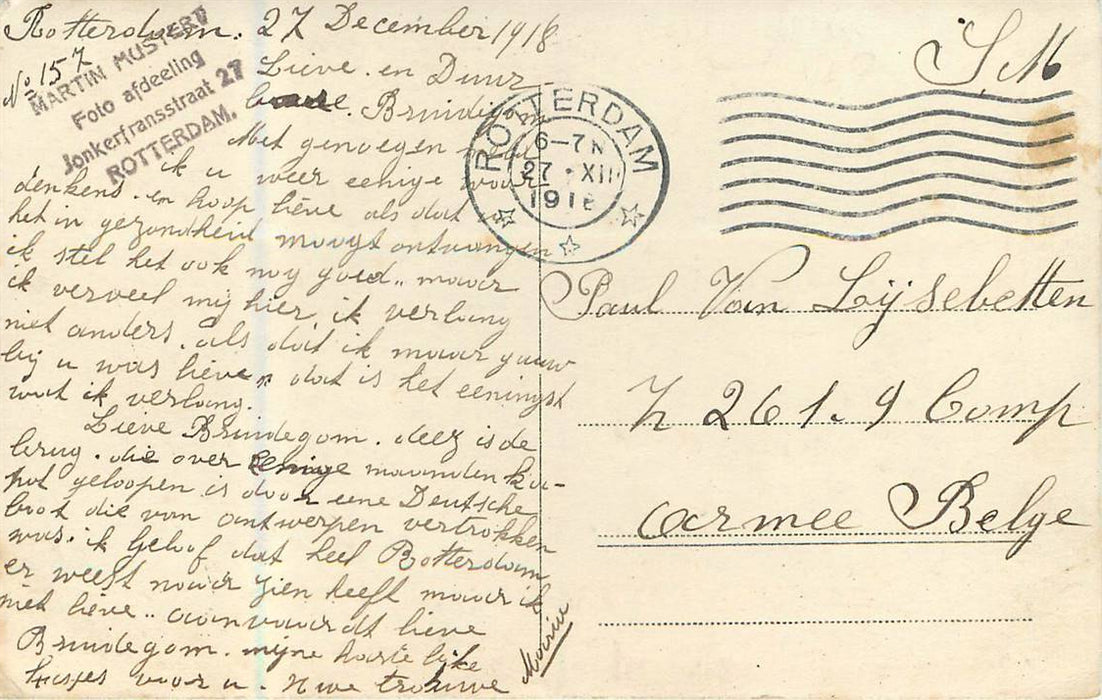 Rotterdam. 27 December 1918
No 157
MARTIN MUSTERD
Foto afdeeling
Jonkerfransstraat 27
ROTTERDAM.
Lieve en Duur-
bare Bruidegom
Met genoegen
ik u weer eenige
denkens. en hoop lieve als dat
het in gezondheid moogt ontvangen
ik stel het ook nog goed.. maar
ik verveel mij hier ik verlang
niet anders. als dat ik maar gauw
bij u was lieve, dat is het eeningst
wat ik verlang.
Lieve Bruidegom. deez is de
brug. die over eenige maanden ka-
pot geloopen is door eene Deutsche
boot die van antwerpen vertrokken
was. ik geloof dat heel Rotterdam
er weest naar zien heeft maar ik
niet lieve.. aanvaardt lieve
Bruidegom. mijne hartelike
kusjes voor u. Uwe trouwe
Marie
ROTTERDAM
6-7 N
27 XII
191
S.M
Paul Van Lijsebetten
Z 261. 9 Comp
Armee Belge